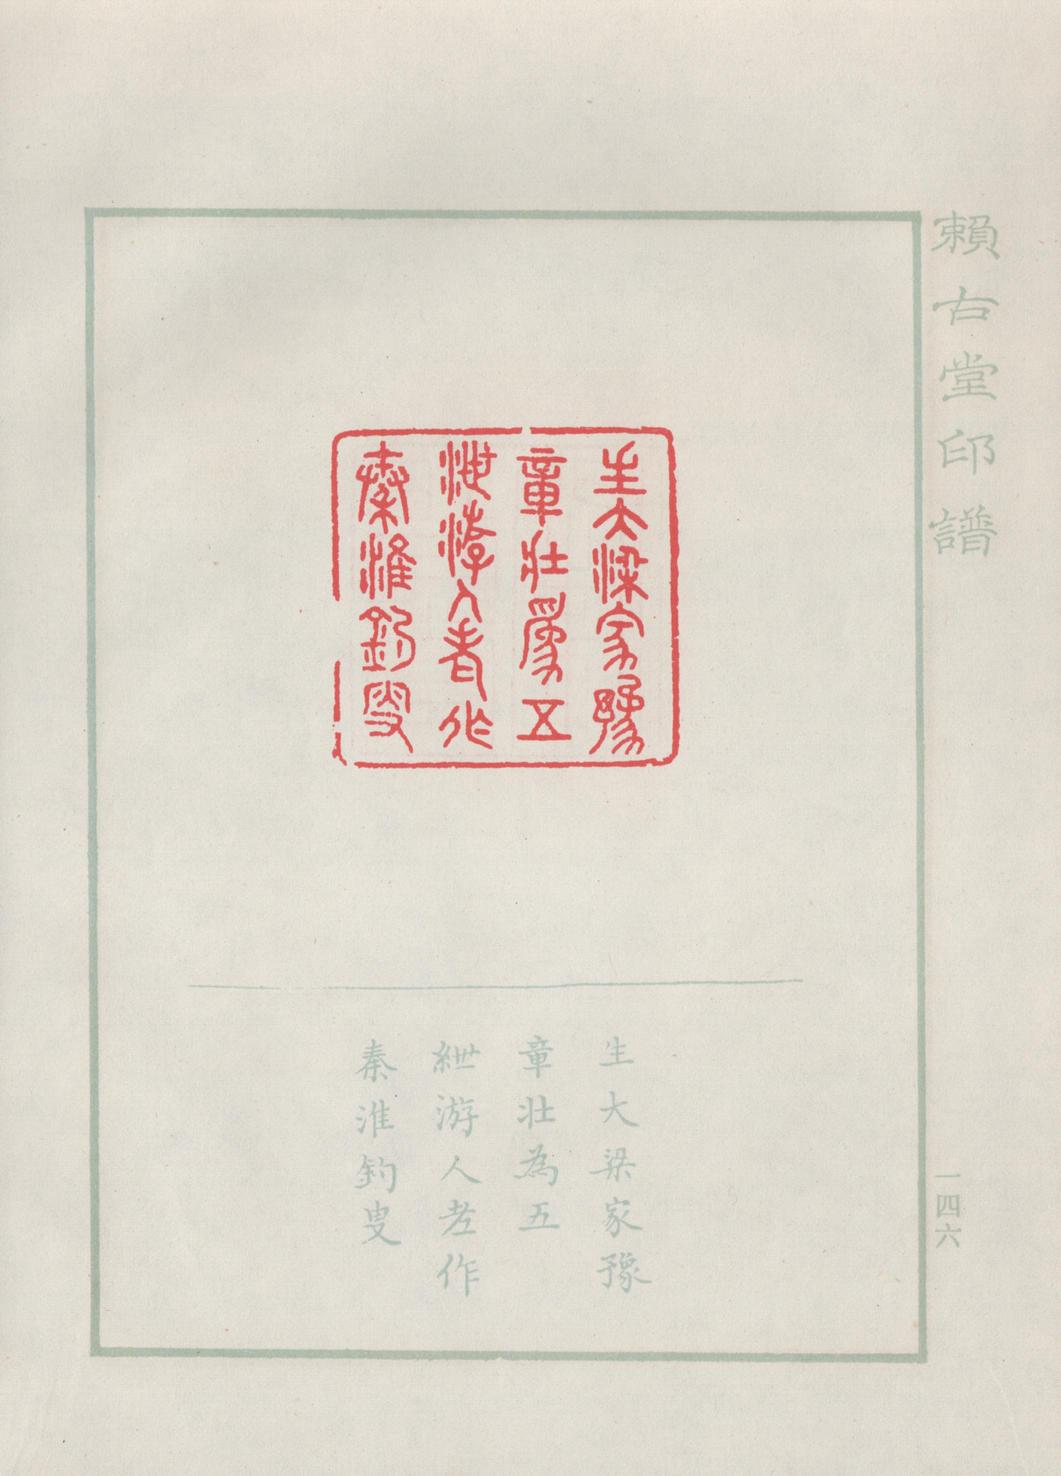 賴古堂印譜
生大梁家豫
章壯爲五
泄游人老作
秦淮釣叟
生大梁家豫
章壯為五
紲游人老作
秦淮釣叟
一四六